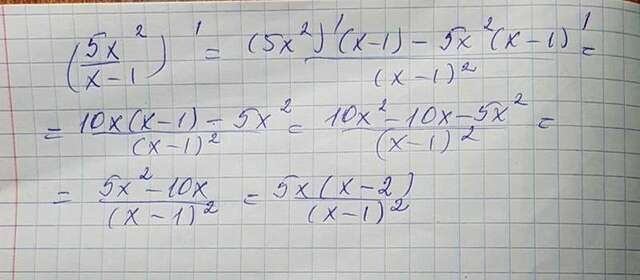 (5x²/(x-1))' = ((5x²)'(x-1) - 5x²(x-1)')/(x-1)² =
= (10x(x-1) - 5x²)/(x-1)² = (10x² - 10x - 5x²)/(x-1)² =
= (5x² - 10x)/(x-1)² = 5x(x-2)/(x-1)²